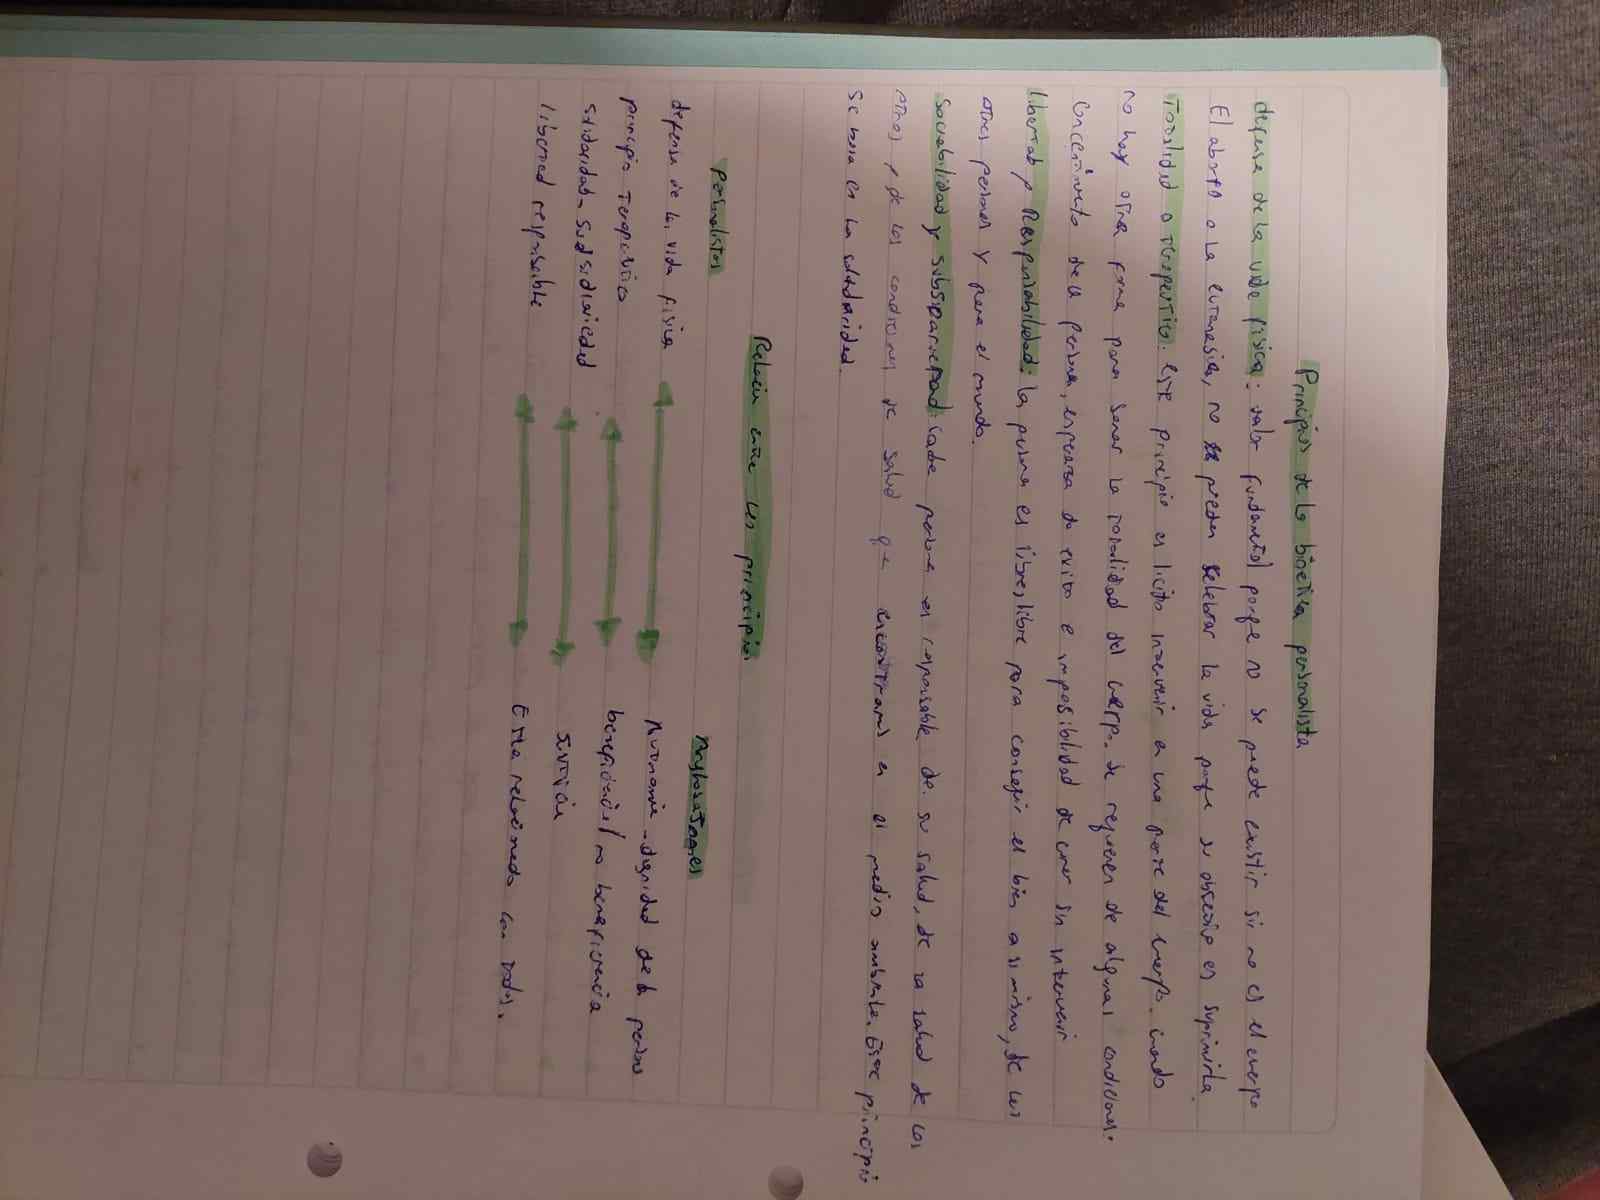 Principios de la bioetica personalista
defensa de la vida fisica: valor fundamental porque no se puede existir si no es el cuerpo
El aborto o la eutanasia, no pueden celebrar la vida porque su objetivo es suprimirla
Totalidad o terapeutico: este principio es licito intervenir a una parte del cuerpo cuando
no hay otra forma para sanar la totalidad del cuerpo. Se requieren de algunas condiciones:
Concentimiento de la persona, esperanza de exito e imposibilidad de curar sin intervenir
libertad y Responsabilidad: la persona es libre, libre para conseguir el bien a si mismo, de las
otras personas y para el mundo.
Sociabilidad y subsidiariedad: cada persona es responsable de su salud, de la salud de los
otros y de las condiciones de salud que encontramos en el medio ambiente. Este principio
se basa en la solidaridad.
Relación entre los principios
Personalistas
Anglosajones
defensa de la vida fisica
Autonomia - dignidad de la persona
principio Terapeutico
beneficencia / no beneficencia
solidaridad - subsidiariedad
Justicia
libertad responsable
Esta relacionado con todos.